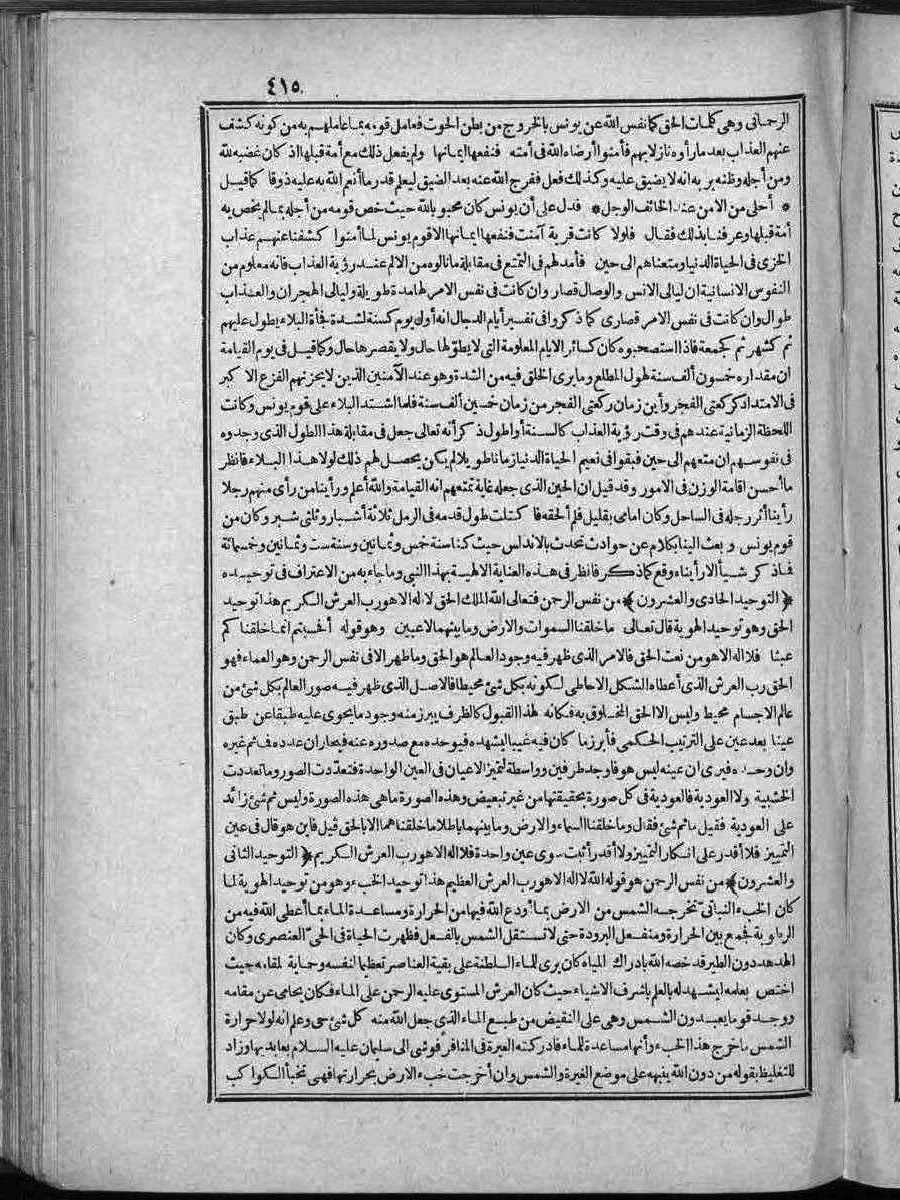 ٤١٥
الرحماني وهي كلمات الحق كما نفس الله عن يونس بالخروج من بطن الحوت فعامل قومه بما عاملهم به من كونه كشف
عنهم العذاب بعد مارأوه نازلا بهم فآمنوا أرضاه الله في أمته فنفعها ايمانها ولم يفعل ذلك مع أمة قبلها اذ كان غضبه لله
ومن أجله وظنه بربه انه لا يضيق عليه وكذلك فعل ففرج الله عنه بعد الضيق ليعلم قدر ما أنعم الله به عليه ذوقا كما قيل
* أحلى من الامن عند الخائف الوجل * فدل على أن يونس كان محبوبا لله حيث خص قومه من أجله بما لم يخص به
أمة قبلها وعرفنا بذلك فقال فلولا كانت قرية آمنت فنفعها ايمانها الا قوم يونس لما آمنوا كشفنا عنهم عذاب
الخزى في الحياة الدنيا ومتعناهم الى حين فأمد لهم في التمتع في مقابلة ما نالوه من الالم عند رؤية العذاب فانه معلوم من
النفوس الانسانية ان ليالى الانس والوصال قصار وان كانت في نفس الامر لها مدة طويلة وليالى الهجران والعذاب
طوال وان كانت في نفس الامر قصارى كما ذكروا في تفسير أيام الدجال انه أول يوم كسنة لشدة فجأة البلاء يطول عليهم
ثم كشهر ثم كجمعة فاذا استصحبوه كان كسائر الايام المعلومة التى لا يطوّلها حال ولا يقصرها حال وكما قيل في يوم القيامة
ان مقداره خمسون ألف سنة لهول المطلع وما يرى الخلق فيه من الشدة وهو عند الآمنين الذين لا يحزنهم الفزع الا كبر
في الامتداد كركعتى الفجر وأين زمان ركعتى الفجر من زمان خمسين ألف سنة فلما اشتد البلاء على قوم يونس وكانت
اللحظة الزمانية عندهم في وقت رؤية العذاب كالسنة أو اطول ذكر أنه تعالى جعل في مقابلة هذا الطول الذى وجدوه
في نفوسهم ان متعهم الى حين فبقوا في نعيم الحياة الدنيا زمانا طويلا لم يكن يحصل لهم ذلك لولا هذا البلاء فانظر
ما أحسن اقامة الوزن في الامور وقد قيل ان الحين الذى جعله غاية تمتعهم انه القيامة والله أعلم ورأينا من رأى منهم رجلا
رأينا أثر رجله في الساحل وكان امامى بقليل فلم ألحقه فا كتلت طول قدمه في الرمل ثلاثة أشبار وثلثى شبر وكان من
قوم يونس وبعث الينا بكلام عن حوادث تحدث بالاندلس حيث كنا سنة خمس وثمانين وسنة ست وثمانين وخمسمائة
فاذكر شيأ الا رأيناه وقع كما ذكر فانظر في هذه العناية الالهية بهذا النبى وما جاء به من الاعتراف في توحيده
﴿ التوحيد الحادى والعشرون ﴾ من نفس الرحمن فتعالى الله الملك الحق لا اله الا هو رب العرش الكريم هذا توحيد
الحق وهو توحيد الهوية قال تعالى ما خلقنا السموات والارض وما بينهما لاعبين وهو قوله أفحسبتم انما خلقنا كم
عبثا فلا اله الا هو من نعت الحق فالامر الذى ظهر فيه وجود العالم هو الحق وما ظهر الا في نفس الرحمن وهو العماء فهو
الحق رب العرش الذى أعطاه الشكل الاحاطى لكونه بكل شئ محيطا فالاصل الذى ظهر فيه صور العالم بكل شئ من
عالم الاجسام محيط وليس الا الحق المخلوق به فكانه لهذا القبول كالظرف يبرز منه وجود ما يحوى عليه طبقا عن طبق
عينا بعد عين على الترتيب الحكمى فأبرز ما كان فيه غيبا ليشهده فيوحده مع صدوره عنه فيحار ان عدده فما ثم غيره
وان وحده فيرى ان عينه ليس هو فأوجد طرفين وواسطة لتميز الاعيان في العين الواحدة فتعدّدت الصور وما تعددت
الخشبية ولا العودية فالعودية في كل صورة بحقيقتها من غير تبعيض وهذه الصورة ماهى هذه الصورة وليس ثم شئ زائد
على العودية فقيل ما ثم شئ فقال وما خلقنا السماء والارض وما بينهما باطلا ما خلقناهما الا بالحق قيل فاين هو قال في عين
التمييز فلا أقدر على انكار التمييز ولا أقدر أثبت سوى عين واحدة فلا اله الا هو رب العرش الكريم ﴿ التوحيد الثانى
والعشرون ﴾ من نفس الرحمن هو قوله الله لا اله الا هو رب العرش العظيم هذا توحيد الخبء وهو من توحيد الهوية لما
كان الخبء النباتى تخرجه الشمس من الارض بما أودع الله فيها من الحرارة ومساعدة الماء بما أعطى الله فيه من
الرطوبة فجمع بين الحرارة ومنفعل البرودة حتى لا تستقل الشمس بالفعل فظهرت الحياة في الحىّ العنصرى وكان
الهدهد دون الطير قد خصه الله بادراك المياه كان يرى للماء السلطنة على بقية العناصر تعظيما لنفسه وحماية لمقامه حيث
اختص بعلمه ليشهد له بالعلم باشرف الاشياء حيث كان العرش المستوى عليه الرحمن على الماء فكان يحامى عن مقامه
ووجد قوما يعبدون الشمس وهى على النقيض من طبع الماء الذى جعل الله منه كل شئ حى وعلم انه لولا حرارة
الشمس ما خرج هذا الخبء وأنها مساعدة للماء فادركته الغيرة في المنافر فوشى الى سليمان عليه السلام بعابديها وزاد
للتغليظ بقوله من دون الله ينبهه على موضع الغيرة والشمس وان أخرجت خبء الارض بحرارتها فهى تخبأ الكواكب